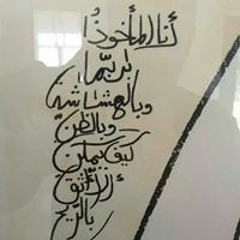 أنا المأخوذُ
بربّما
وبالهشاشة
وبالظن
كيف يمكن
أن أثق
بالريح